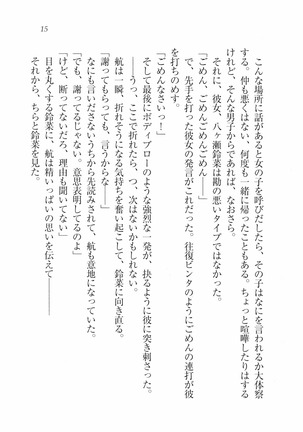 15
こんな場所に話があると女の子を呼びだしたら、その子はなにを言われるか大体察
する。仲も悪くはない、何度も一緒に帰ったこともある。ちょっと喧嘩したりはする
けれど、そんな男子からであれば、なおさら。
それに、彼女、八ヶ瀬鈴菜は勘の悪いタイプではなかった。
「ごめん、ごめんごめんごめん━━」
で、先手を打った彼女の発言がこれだった。往復ビンタのようにごめんの連打が彼
を打ちのめす。
「ごめんなさいっ！」
そして最後にボディブローのような強烈な一発が、抉るように彼に突き刺さった。
━━うっ、ここで折れたら、つ、次はないかもしれない。
航は一瞬、折れそうになる気持ちを奮い起こして、鈴菜に向き直る。
「謝ってもらっても、言うからな━━」
なにも言いださないうちから先読みされて、航も意地になっていた。
「謝ってるでしょ。じゃない。意思表明してるのよ」
「けど、断ってないだろ、理由も聞いてない」
目を丸くする鈴菜に、航は精いっぱいの思いを伝えて━━━━
それから、ちらと鈴菜を見た。